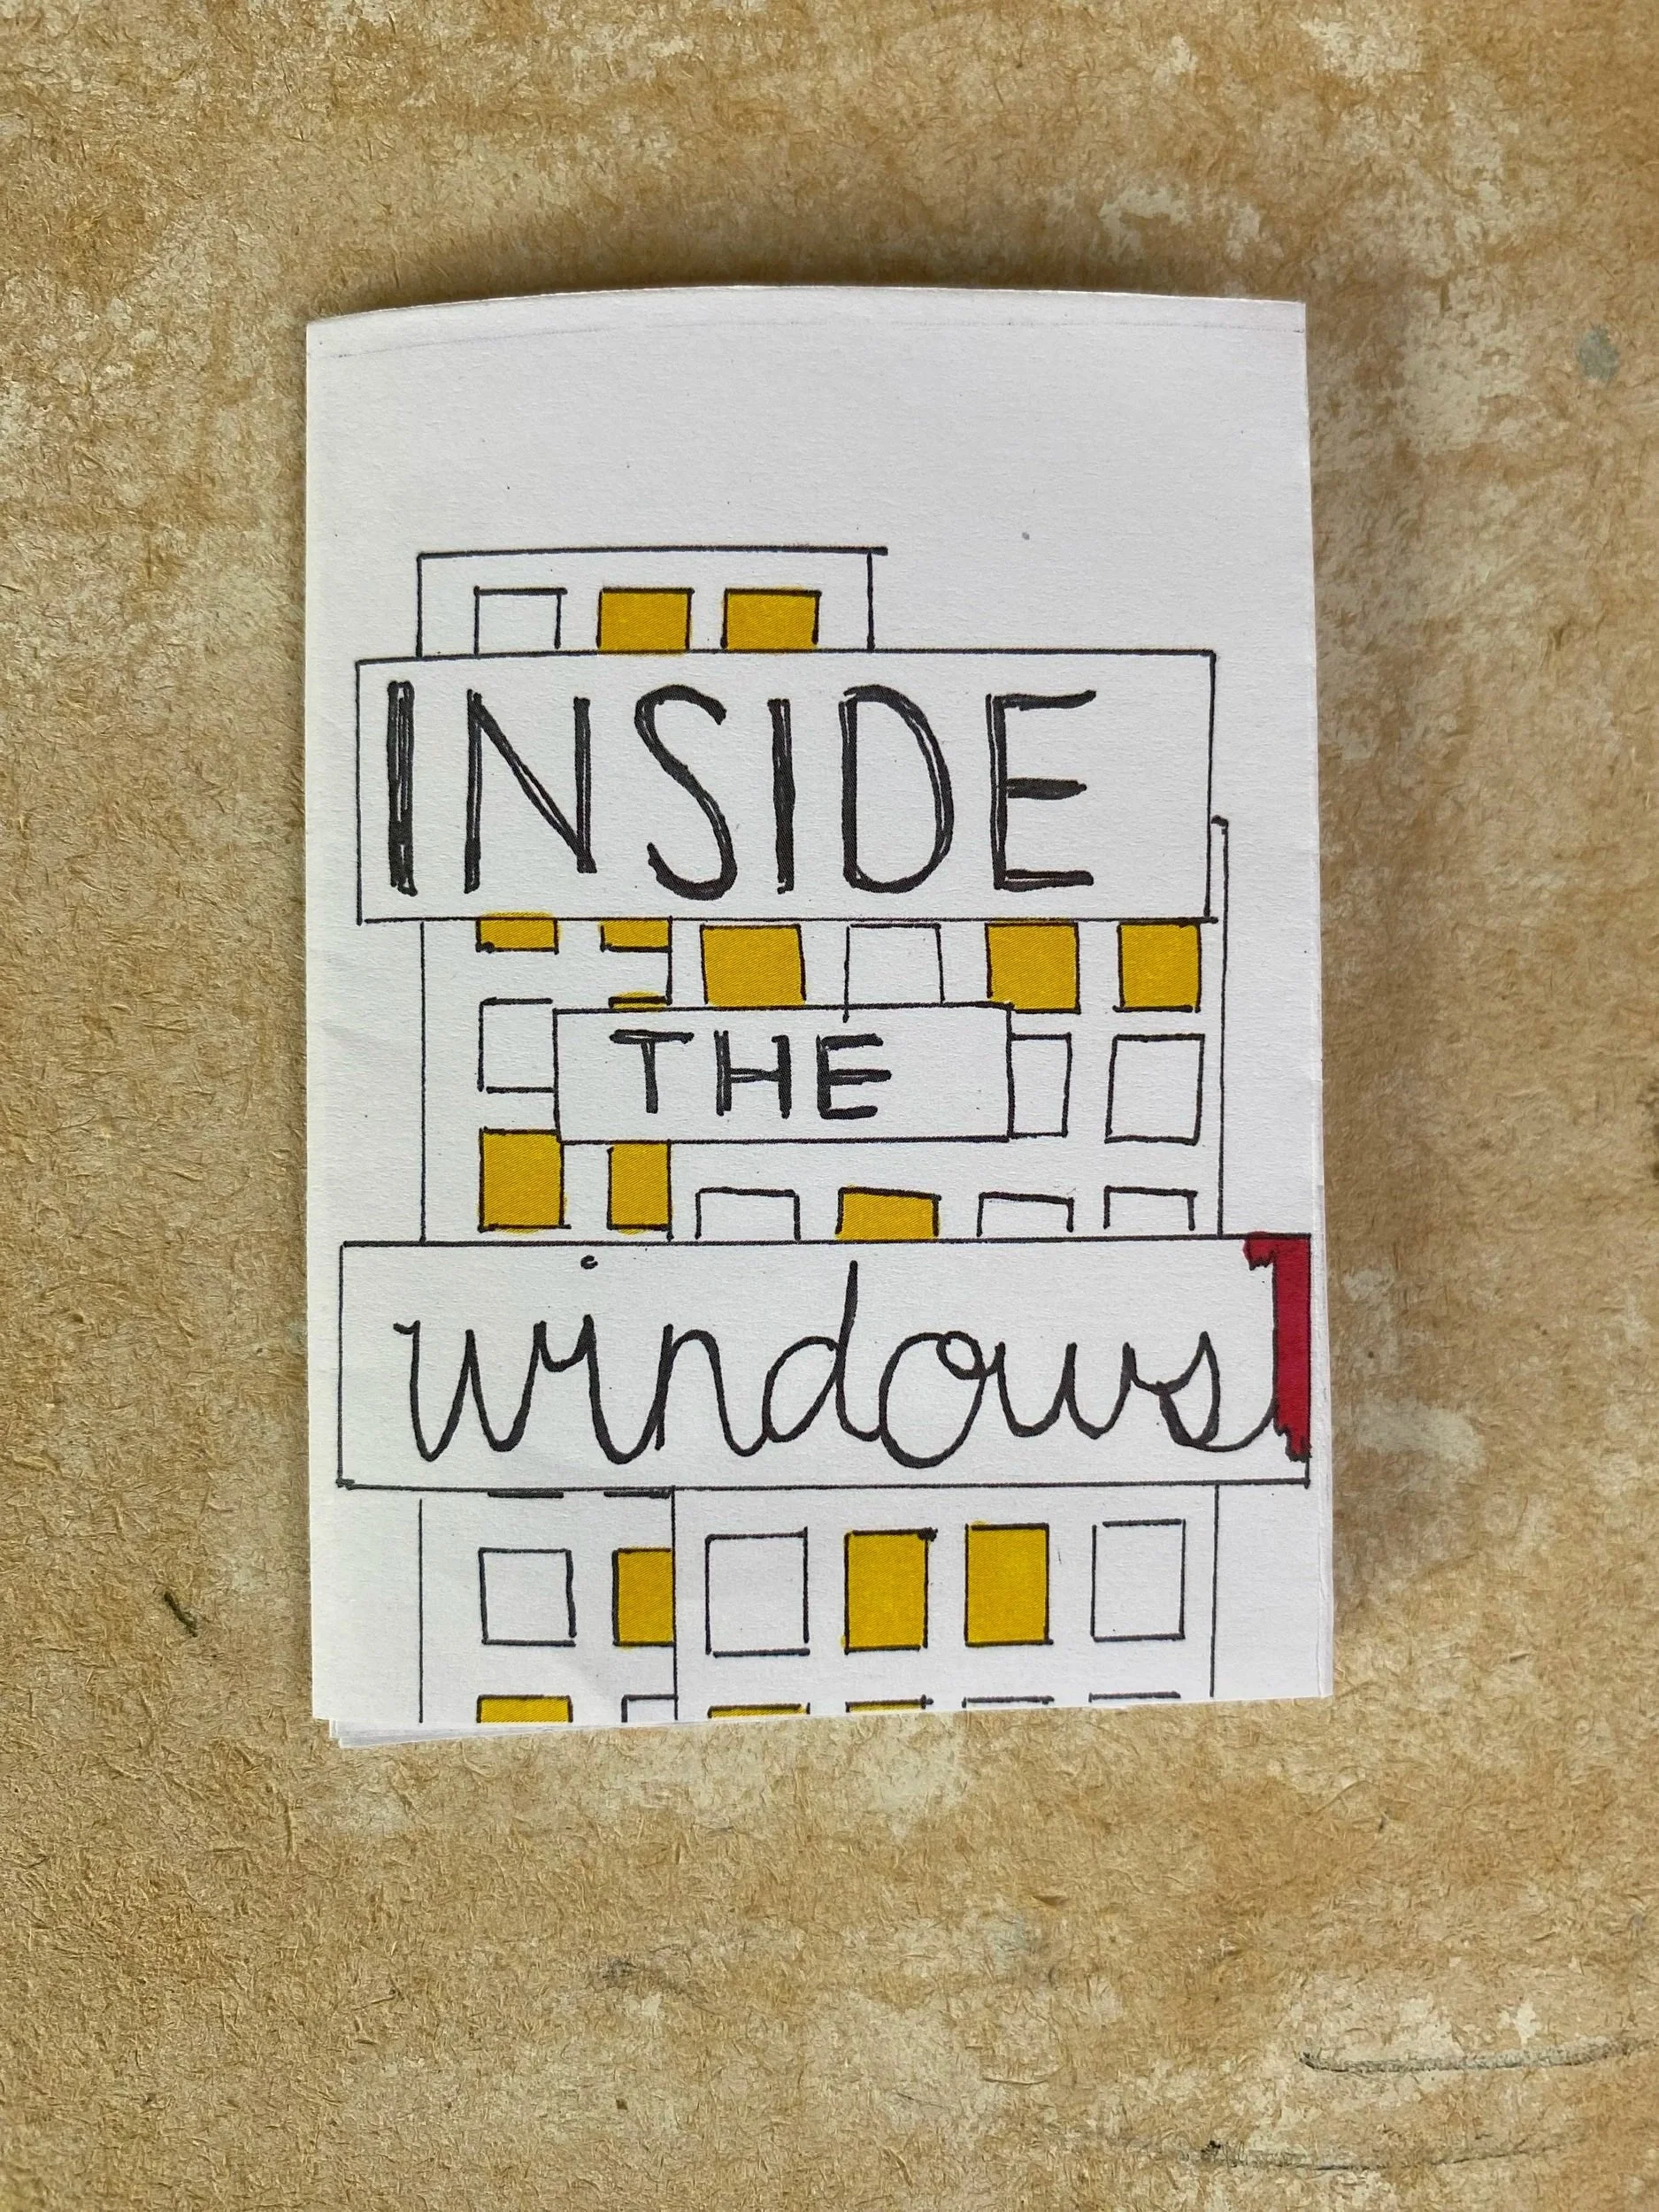 INSIDE
THE
windows